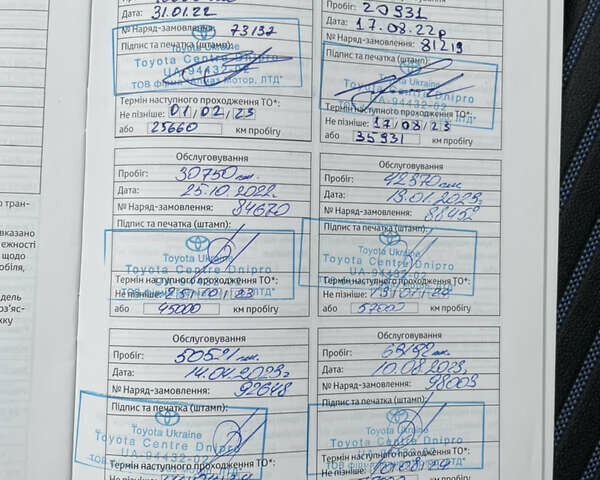 Дата: 31.01.22
№ Наряд-замовлення: 73132
Підпис та печатка (штамп):
Toyota Ukraine
Toyota Centre Dnipro
UA-94432-02
Термін наступного проходження ТО*:
Не пізніше: 01/02/23
або 25660 км пробігу
Пробіг: 20931
Дата: 17.08.22р
№ Наряд-замовлення: 81219
Підпис та печатка (штамп):
Toyota Ukraine
Toyota Centre Dnipro
UA-94432-02
Термін наступного проходження ТО*:
Не пізніше: 17/08/23
або 35931 км пробігу
Обслуговування
Пробіг: 30750 км.
Дата: 25.10.2022г
№ Наряд-замовлення: 84670
Підпис та печатка (штамп):
Toyota Ukraine
Toyota Centre Dnipro
Термін наступного проходження ТО*:
Не пізніше: 25/10/23
або 45000 км пробігу
Обслуговування
Пробіг: 42370 км
Дата: 19.01.2023г
№ Наряд-замовлення:
Підпис та печатка (штамп):
Toyota Ukraine
Toyota Centre Dnipro
UA-94432-02
Термін наступного проходження ТО*:
Не пізніше:
або км пробігу
Обслуговування
Пробіг:
Дата: 14.04.2023г
№ Наряд-замовлення: 92648
Підпис та печатка (штамп):
Toyota Ukraine
Toyota Centre Dnipro
UA-94432-02
Термін наступного проходження ТО*:
Обслуговування
Пробіг: 63192 км
Дата: 10.08.2023г
№ Наряд-замовлення: 98003
Підпис та печатка (штамп):
Toyota Ukraine
Toyota Centre Dnipro
Термін наступного проходження ТО*: